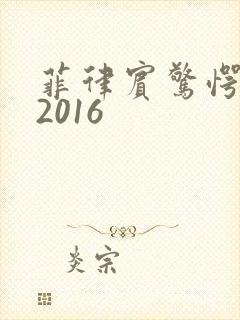 菲律宾驚愕
2016
炎宗